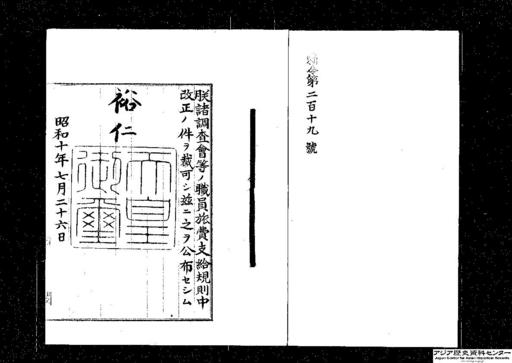 勅令第二百十九號
朕諸調査會等ノ職員旅費支給規則中
改正ノ件ヲ裁可シ茲ニ之ヲ公布セシム
裕仁
天皇御璽
昭和十年七月二十六日
アジア歴史資料センター
Japan Center for Asian Historical Records